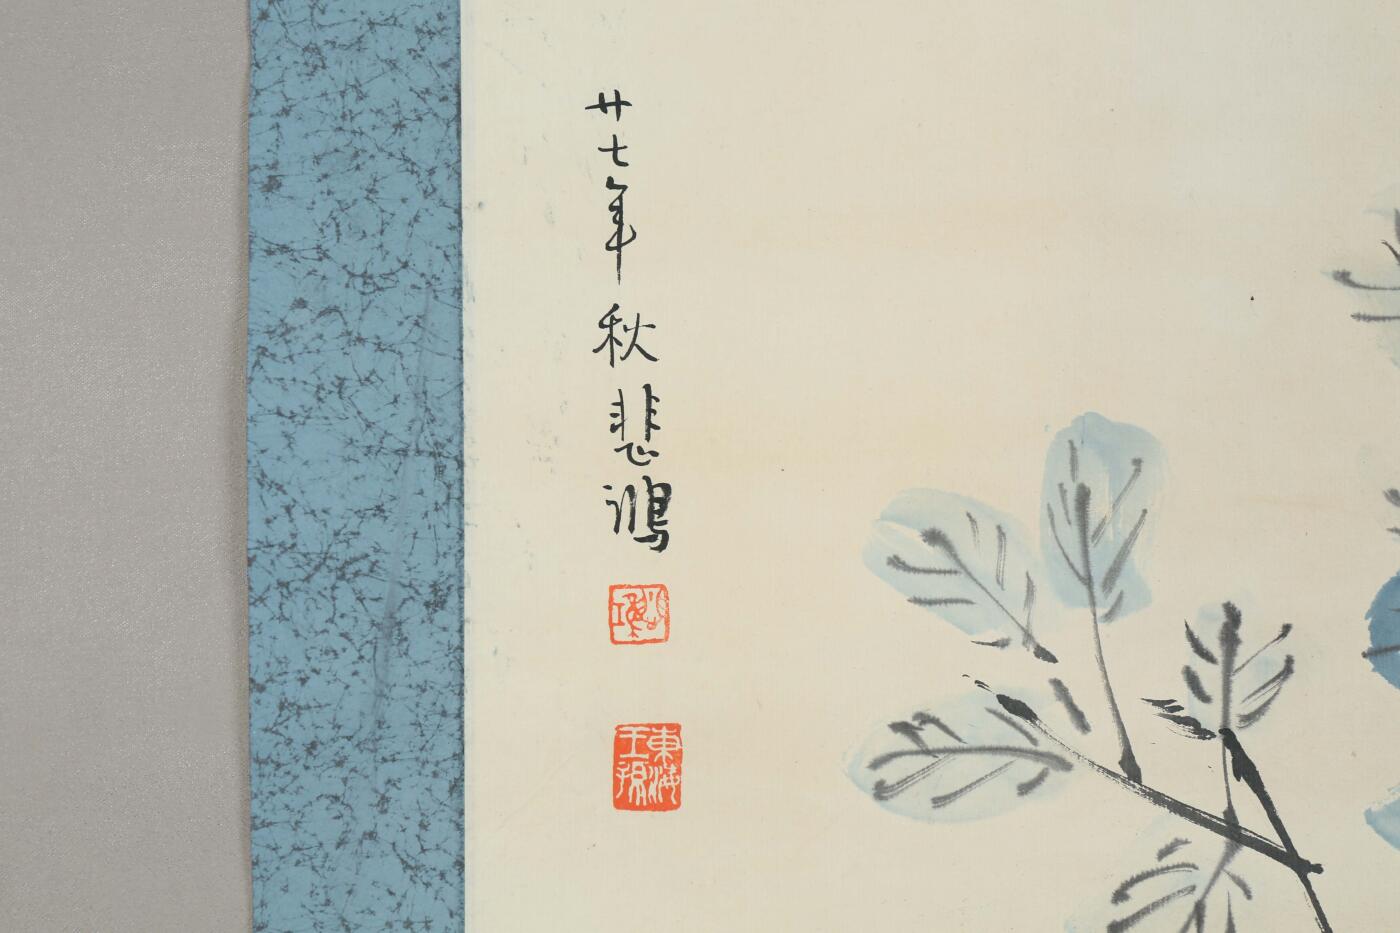 廿七年秋悲鴻
東海王孫